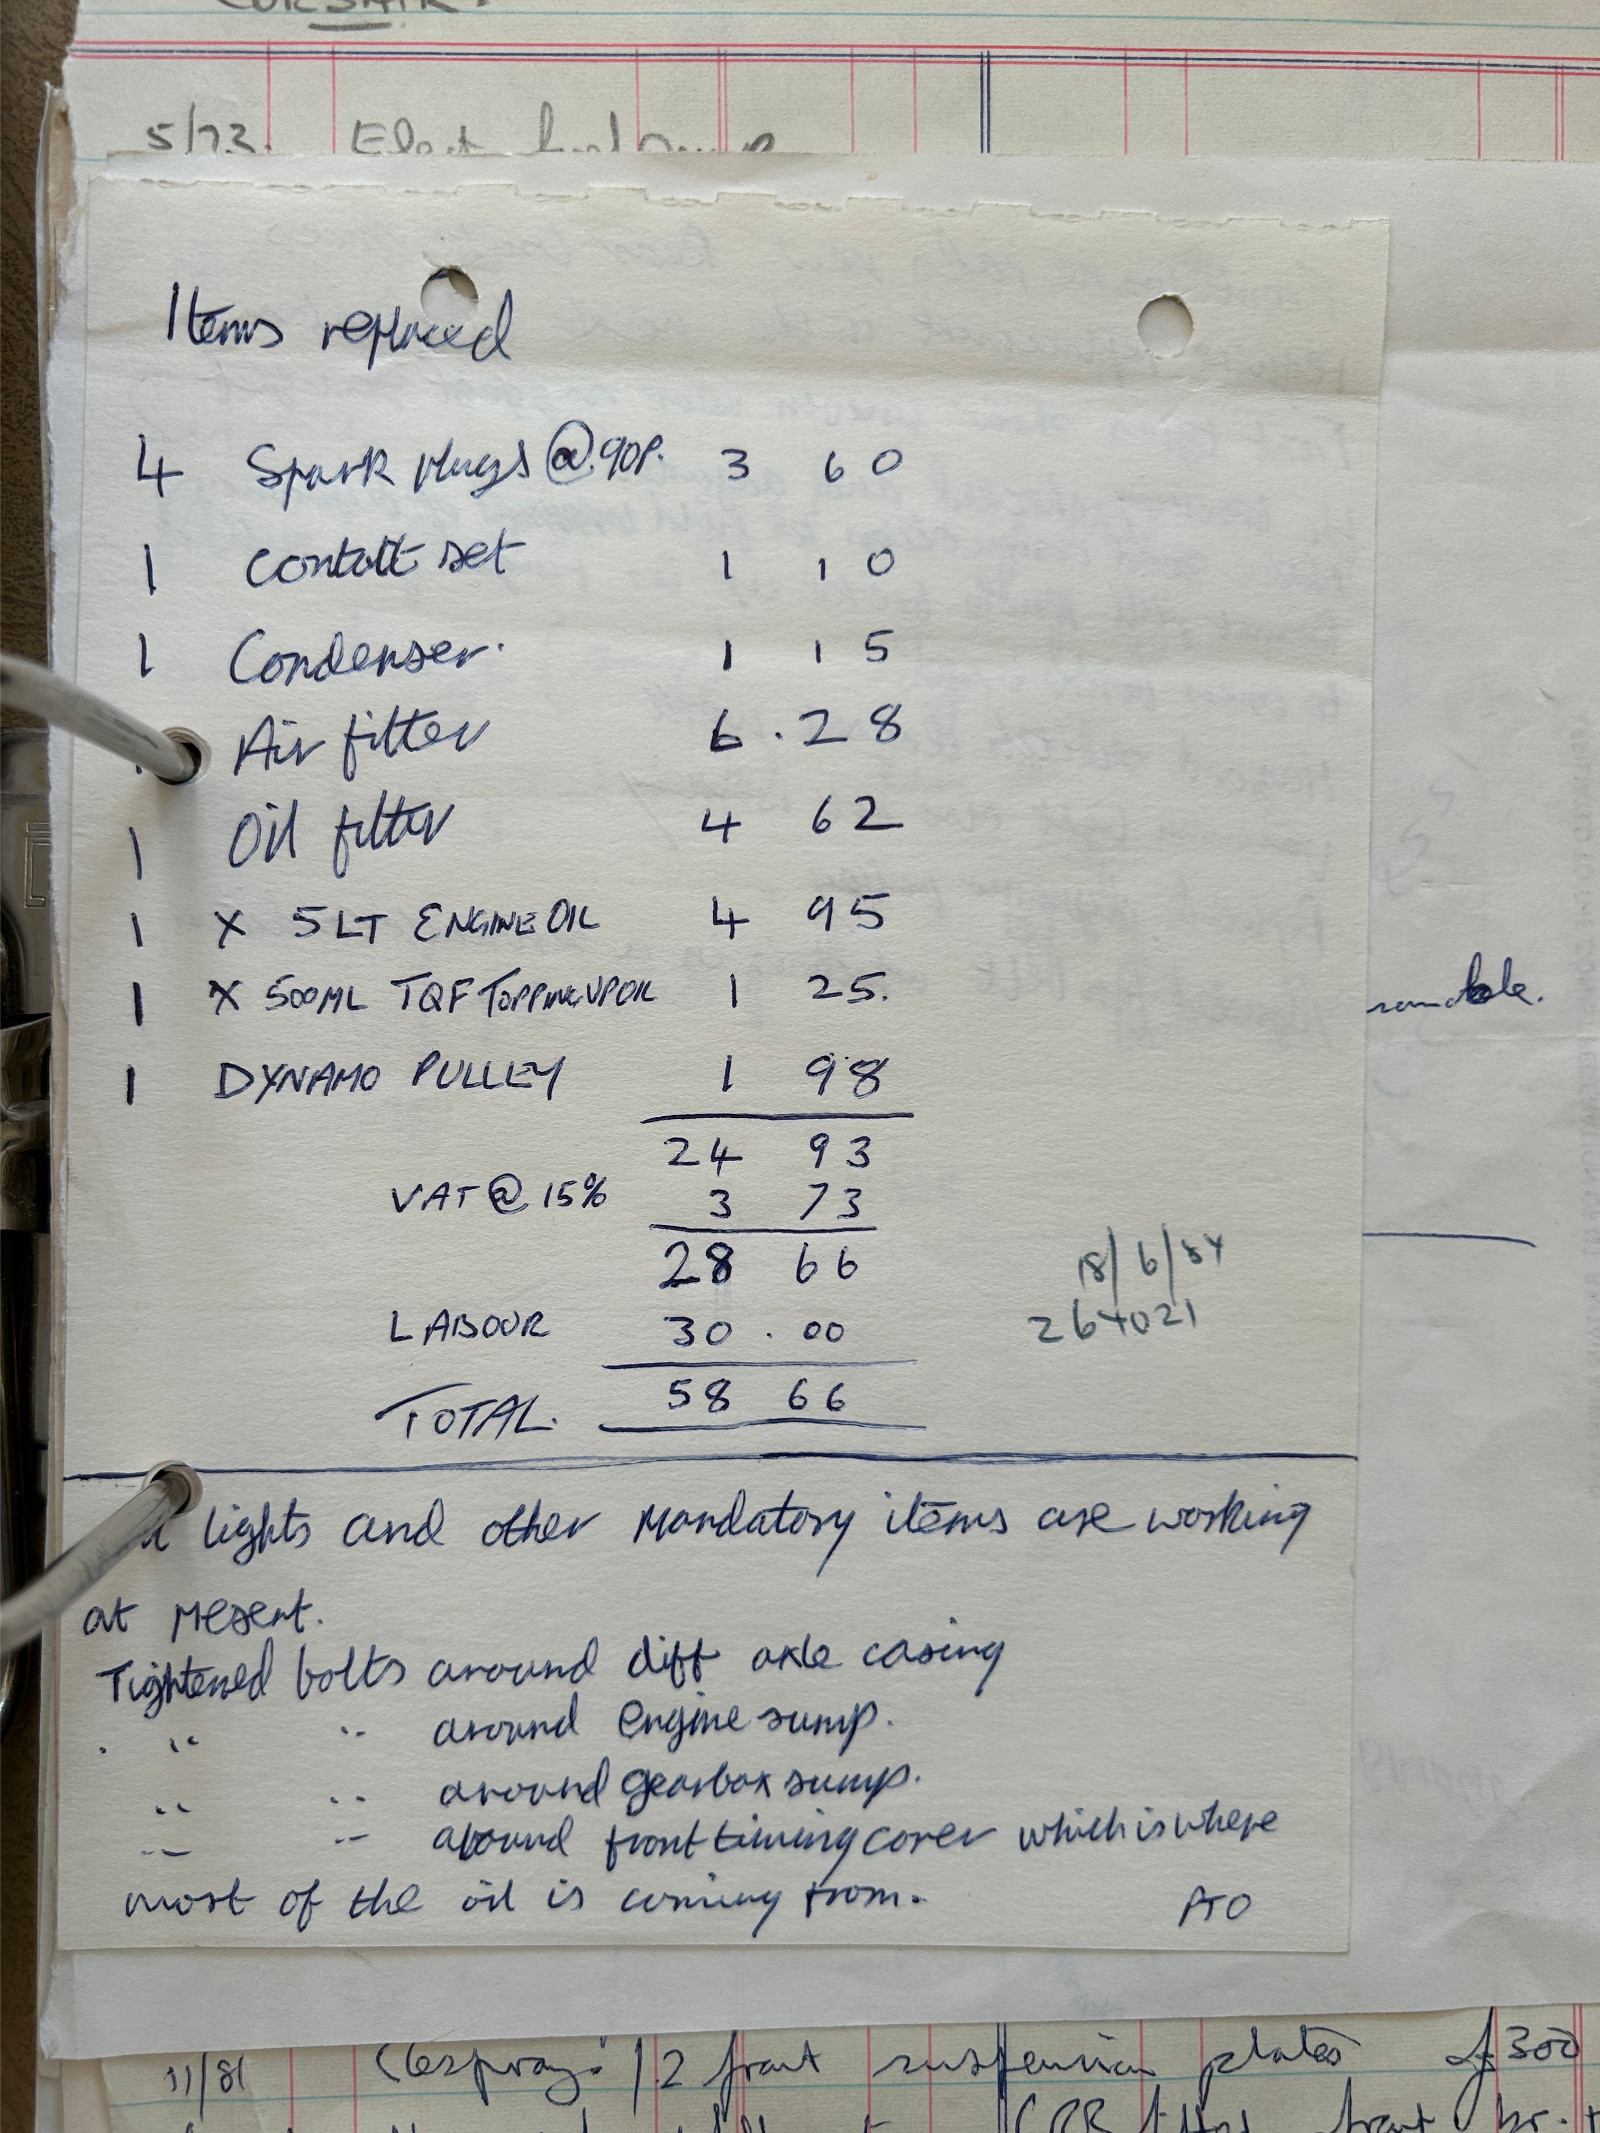 CORSAIR.
5/73. Elect fuel pump
Items replaced
4 Spark plugs @ 90P. 3 60
1 Contact set 1 10
1 Condenser. 1 15
Air filter 6.28
1 Oil filter 4 62
1 X 5LT ENGINE OIL 4 95
1 X 500ML TQF TOPPING UP OIL 1 25.
1 DYNAMO PULLEY 1 98
24 93
VAT @ 15% 3 73
28 66
18/6/84
LABOUR 30.00
264021
TOTAL. 58 66
lights and other Mandatory items are working
at present.
Tightened bolts around diff axle casing
" " around engine sump.
" " around gearbox sump.
" " around front timing cover which is where
most of the oil is coming from.
PTO
11/81 Respray. / 2 front suspension plates £300